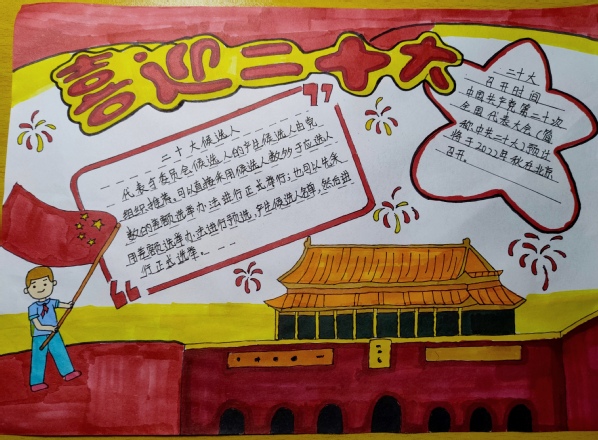 喜迎二十大
二十大
召开时间
中国共产党第二十次
全国代表大会（简
称中共二十大）预计
将于2022年秋在北京
召开。
二十大候选人
代表等委员会候选人的产生候选人由党
组织推荐。可以直接采用候选人数多于应选人
数的差额选举办法进行正式举行；也可以先采
用差额选举办法进行预选，产生候选人名单，然后进
行正式选举。